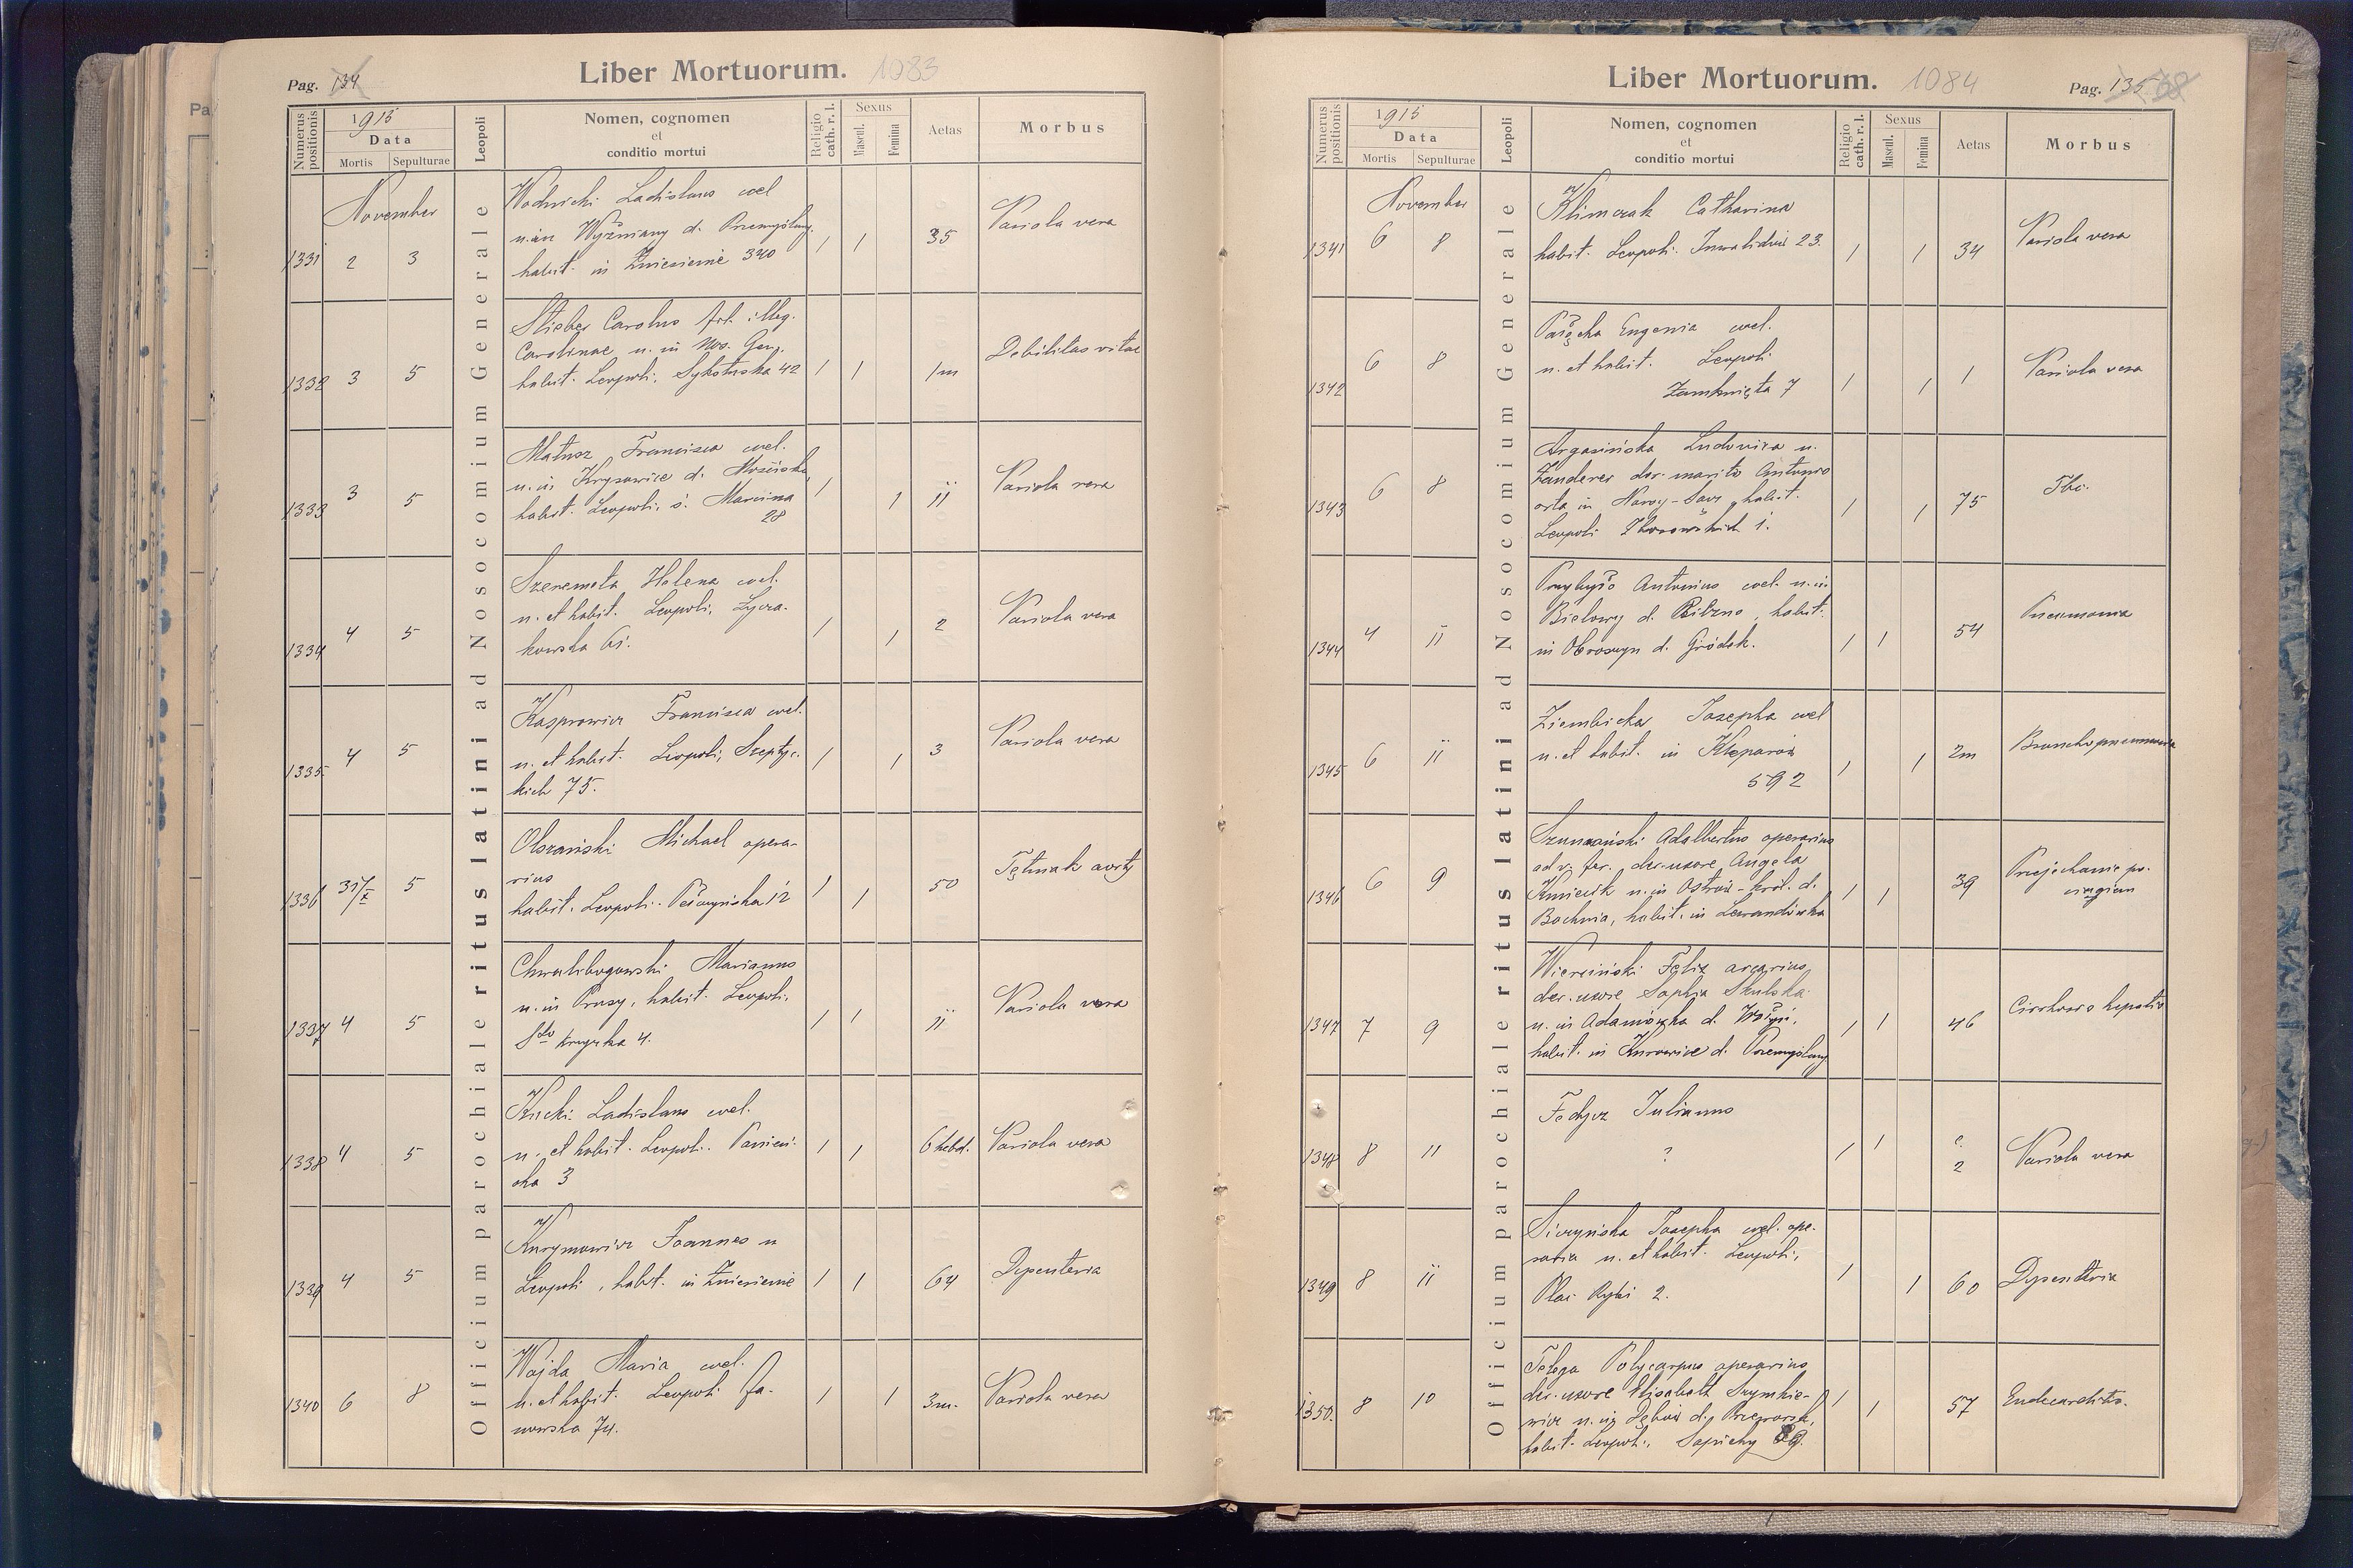 Liber Mortuorum. 1083
Pag. 134
Numerus positionis
1915
Data
Mortis
Sepulturae
Leopoli
Nomen, cognomen
et
conditio mortui
Religio cath. r. l.
Sexus
Mascul.
Femina
Aetas
Morbus
Officium parochiale ritus latini ad Nosocomium Generale
November
1331 2 3
Wodnicki Ladislaus cael
n. in Wyżniany d. Przemyślany
habit. in Zniesienie 340
1 1 35 Variola vera
1332 3 5
Stieber Carolus fil. illeg.
Carolinae n. in Nos. Gen.
habit. Leopoli, Sykstuska 42
1 1 1m Debilitas vitae
1333 3 5
Matusz Francisca cael.
n. in Krysowice d. Mościska
habit. Leopoli, ś. Marcina
28
1 1 11 Variola vera
1334 4 5
Szeremeta Helena cael.
n. et habit. Leopoli, Łycza-
kowska 61.
1 1 2 Variola vera
1335 4 5
Kasprowicz Francisca cael.
n. et habit. Leopoli, Szeptyc-
kich 75.
1 1 3 Variola vera
1336 31/X 5
Olszański Michael opera-
rius
habit. Leopoli. Pełczyńska 12
1 1 50 Tętniak aorty
1337 4 5
Chwalibogowski Marianus
n. in Prusy, habit. Leopoli,
Sto Krzyska 4.
1 1 11 Variola vera
1338 4 5
Kucki Ladislaus cael.
n. et habit. Leopoli. Panień-
ska 3
1 1 6 hebd. Variola vera
1339 4 5
Kurymowicz Joannes n
Leopoli, habit. in Zniesienie
1 1 64 Dysenteria
1340 6 8
Wajda Maria cael.
n. et habit. Leopoli Ja-
nowska 74.
1 1 3m. Variola vera
Liber Mortuorum. 1084
Pag. 135 68
Numerus positionis
1915
Data
Mortis
Sepulturae
Leopoli
Nomen, cognomen
et
conditio mortui
Religio cath. r. l.
Sexus
Mascul.
Femina
Aetas
Morbus
Officium parochiale ritus latini ad Nosocomium Generale
November
1341 6 8
Klimczak Catharina
habit. Leopoli. Inwalidów 23.
1 1 34 Variola vera
1342 6 8
Eugenia cael.
n. et habit. Leopoli
Zamknięta 7
1 1 1 Variola vera
1343 6 8
Argasińska Ludovica n.
Zanderer der. marito Antonio
orta in Novy-Sacz, habit.
Leopoli Zborowskich 1.
1 1 75 Tbc.
1344 4 11
Przybyło Antonius cael. n. in
Bielowy d. Pilzno, habit.
in Obroszyn d. Gródek.
1 1 54 Pneumonia
1345 6 11
Ziembicka Josepha cael
n. et habit. in Kleparów
592
1 1 2m Bronchopneumonia
1346 6 9
Szumański Adalbertus operarius
ad v. fer. der. uxore Angela
Kmiecik n. in Ostrów-król. d.
Bochnia, habit. in Lewandówka
1 1 39 Przejechanie po-
ciągiem
1347 7 9
Wierciński Felix
der. uxore Sophia Skulska
n. in Adamówka d.
habit. in Kurowice d. Przemyślany
1 1 46 Cirrhosis hepatis
1348 8 11
Fedycz Julianus
?
1 1 c. 2 Variola vera
1349 8 11
Siczyńska Josepha cael. ope-
raria n. et habit. Leopoli,
Plac Rybi 2.
1 1 60 Dysenteria
1350. 8 10
Telega Polycarpus operarius
der. uxore Elisabeth Szymkie-
wicz n. in Dębów d. Przeworsk,
habit. Leopoli, Sapiehy 89.
1 1 57 Endocarditis.